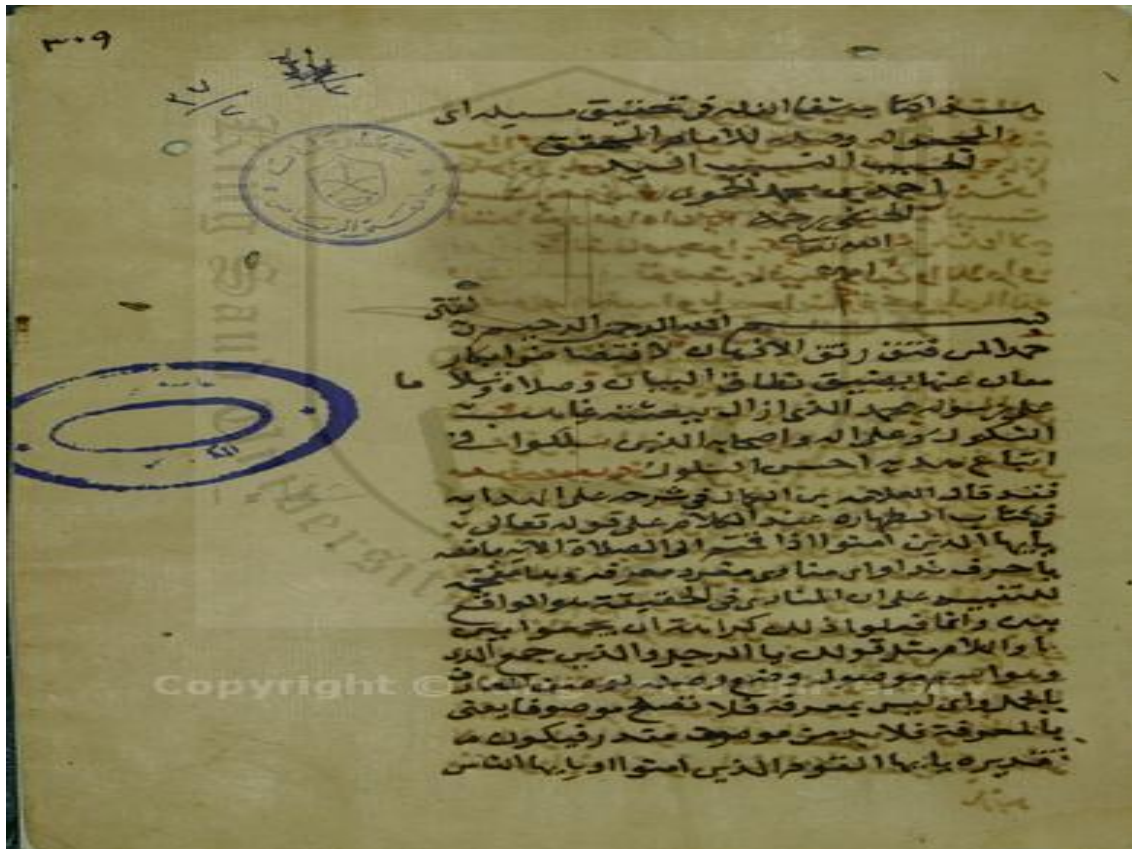 ٣٠٩
٣٧/٧
هذا كتاب شفا الغله في تحقيق مسيله اى
المجعوله وصله للامام المحقق
الحسيب النسيب السيد
احمد بن محمد الحموي
الحنفي رحمه
الله تعالى
امين
بسم الله الرحمن الرحيم
حمدا لمن فتق رتق الاذهان لاقتضاض ابكار
معان عنها يضيق نطاق البيان وصلاة
على رسوله محمد الذي ازال ببعثته غياهب
الشكوك وعلى اله واصحابه الذين سلكوا في
اتباع هديه احسن السلوك
فقد قال العلامه بن الكمال في شرحه على الهدايه
في كتاب الطهاره عند الكلام على قوله تعالى
يا ايها الذين امنوا اذا قمتم الى الصلاة الايه ما نصه
يا حرف ندا واى منادى مفرد معرفه وها
للتنبيه على ان المنادى في الحقيقة هو الواقع
بعده وانما فعلوا ذلك كراهة ان يجمعوا بين
يا واللام مثل قولك يا الرجل والذين جمع الذى
وهو اسم موصول وضع وصله لوصف المعارف
بالجمل واى ليس بمعرفه فلا تصلح موصوفا يعنى
بالمعرفة فلا بد من موصوف مقدر فيكون
تقديره يا ايها القوم الذين امنوا او يا ايها الناس
Copyright ©